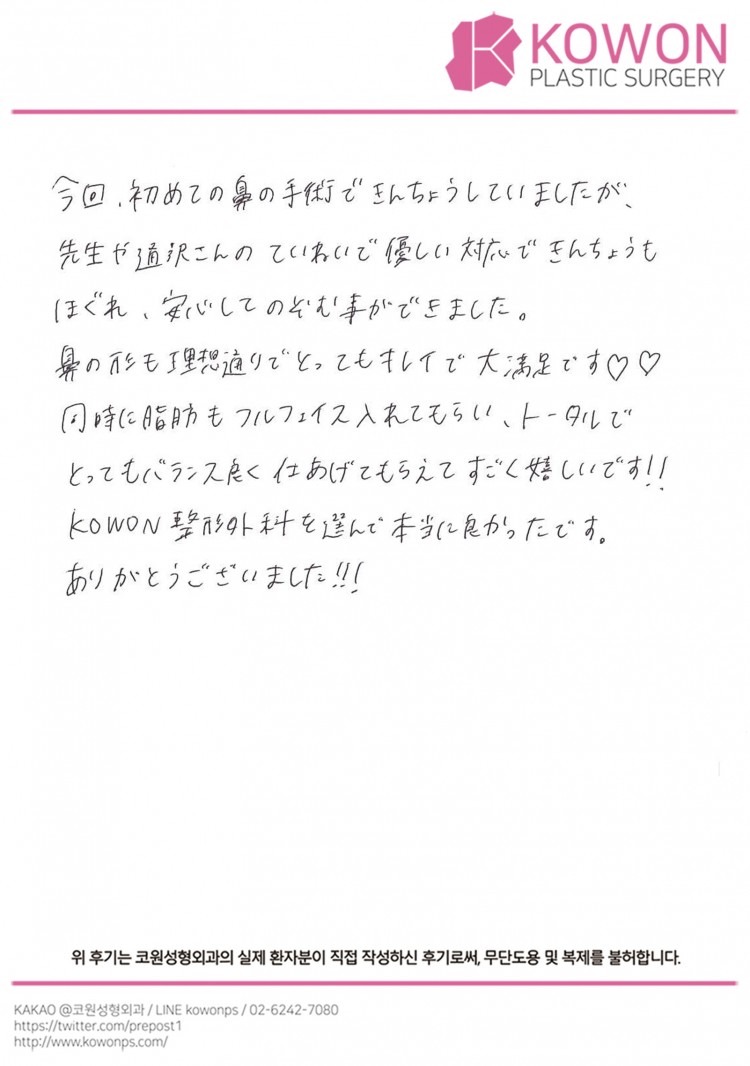 KOWON
PLASTIC SURGERY
今回、初めての鼻の手術できんちょうしていましたが、
先生や通沢さんの ていねいで優しい対応で きんちょうも
ほぐれ、安心してのぞむ事ができました。
鼻の形も理想通りでとってもキレイで大満足です♡♡
同時に脂肪もフルフェイス入れてもらい、トータルで
とってもバランス良く仕あげてもらえてすごく嬉しいです!!
KOWON 整形外科を選んで本当に良かったです。
ありがとうございました!!!
위 후기는 코원성형외과의 실제 환자분이 직접 작성하신 후기로써, 무단도용 및 복제를 불허합니다.
KAKAO @코원성형외과 / LINE kowonps / 02-6242-7080
https://twitter.com/prepost1
http://www.kowonps.com/